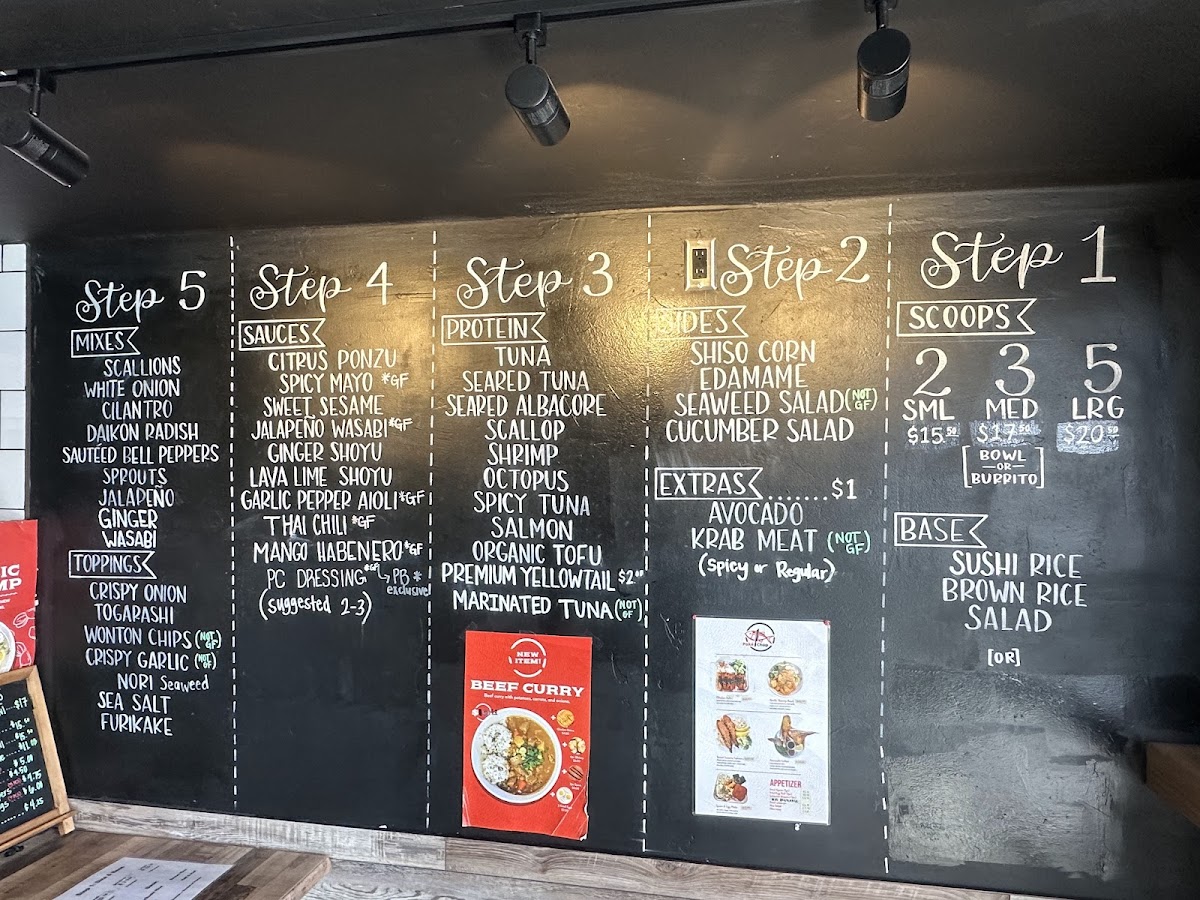 Step 5
MIXES
SCALLIONS
WHITE ONION
CILANTRO
DAIKON RADISH
SAUTÉED BELL PEPPERS
SPROUTS
JALAPEÑO
GINGER
WASABI
TOPPINGS
CRISPY ONION
TOGARASHI
WONTON CHIPS (NOT GF)
CRISPY GARLIC (NOT GF)
NORI Seaweed
SEA SALT
FURIKAKE
Step 4
SAUCES
CITRUS PONZU
SPICY MAYO *GF
SWEET SESAME
JALAPEÑO WASABI *GF
GINGER SHOYU
LAVA LIME SHOYU
GARLIC PEPPER AIOLI *GF
THAI CHILI *GF
MANGO HABENERO *GF
PC DRESSING *GF
PB *
exclusive
(suggested 2-3)
Step 3
PROTEIN
TUNA
SEARED TUNA
SEARED ALBACORE
SCALLOP
SHRIMP
OCTOPUS
SPICY TUNA
SALMON
ORGANIC TOFU
PREMIUM YELLOWTAIL $2
MARINATED TUNA (NOT GF)
NEW ITEM!
BEEF CURRY
Beef curry with potatoes, carrots, and onions.
Step 2
SIDES
SHISO CORN
EDAMAME
SEAWEED SALAD (NOT GF)
CUCUMBER SALAD
EXTRAS.......$1
AVOCADO
KRAB MEAT (NOT GF)
(Spicy or Regular)
APPETIZER
Step 1
SCOOPS
2 3 5
SML MED LRG
$15.50 $17.50 $20.50
[BOWL
-OR-
BURRITO]
BASE
SUSHI RICE
BROWN RICE
SALAD
[OR]